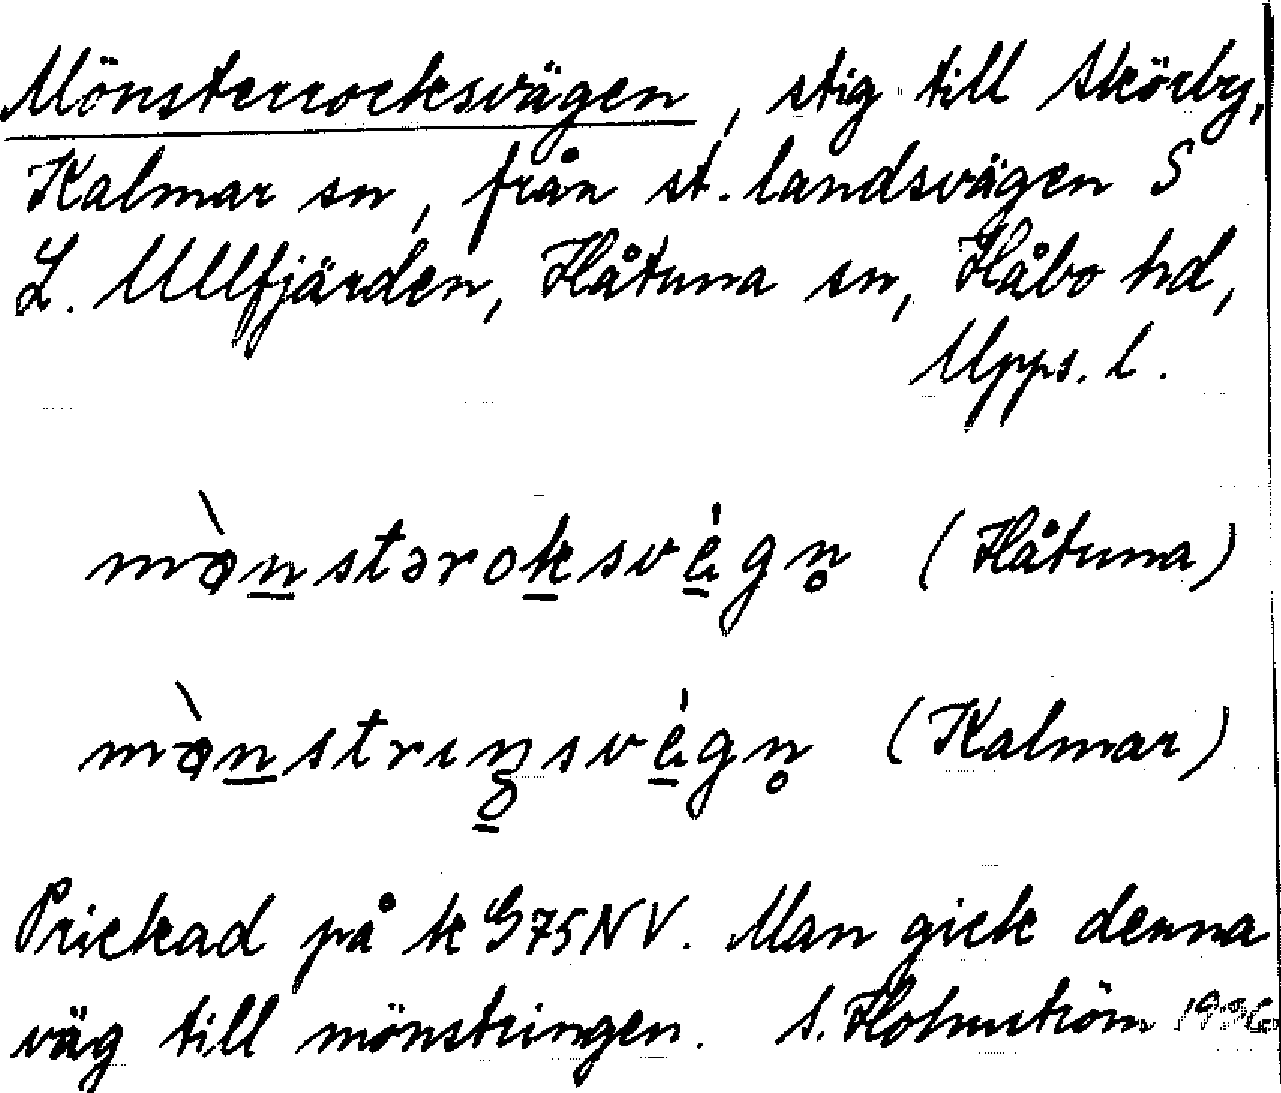 Mönsterrocksvägen, stig till Skörby,
Kalmar sn, från st. landsvägen S
L. Ullfjärden, Håtuna sn, Håbo hd,
Upps. l.
mònstəroksvégn̥ (Håtuna)
mònstrıŋsvégn̥ (Kalmar)
Prickad på k G75NV. Man gick denna
väg till mönstringen. S. Holmström